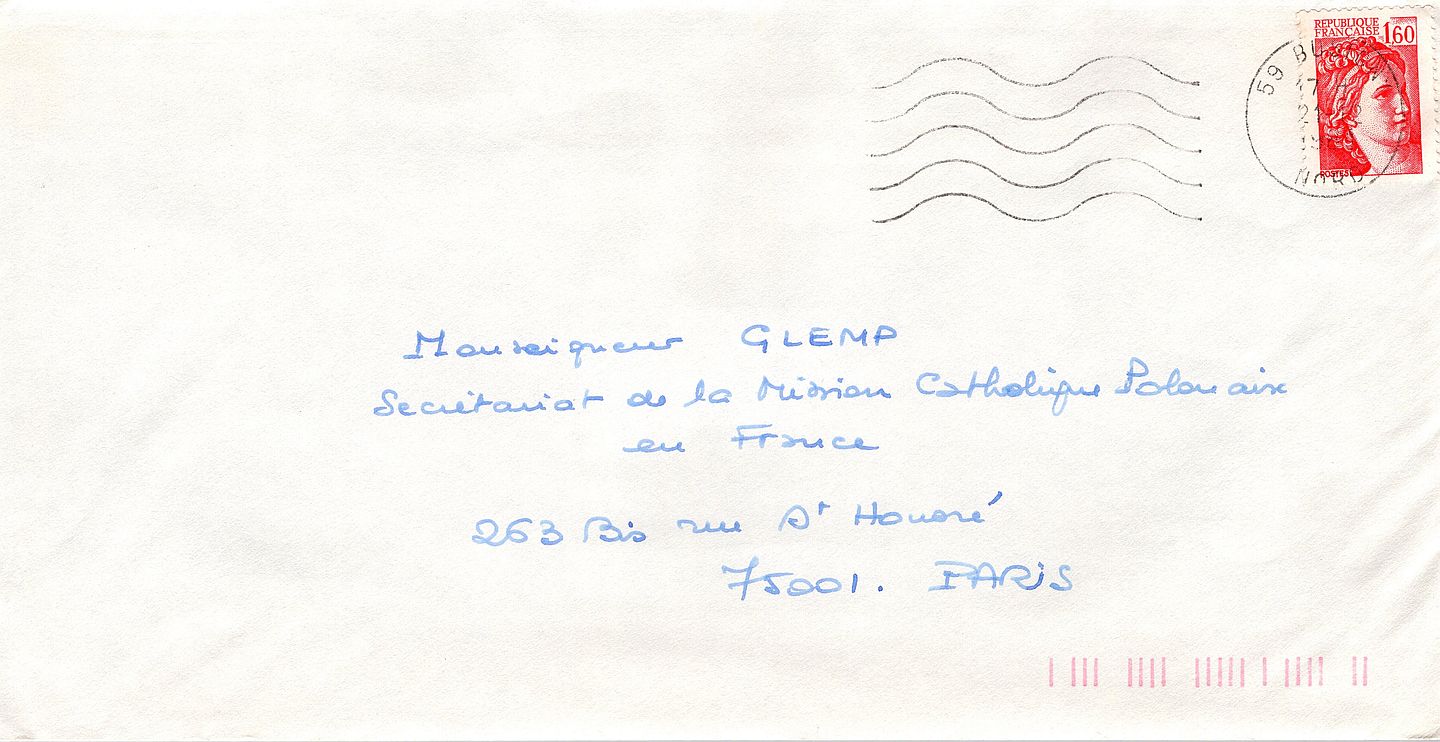 REPUBLIQUE
FRANÇAISE 1,60
POSTES
59
NORD
Monseigneur GLEMP
Secrétariat de la Mission Catholique Polonaise
en France
263 Bis rue St Honoré
75001. PARIS